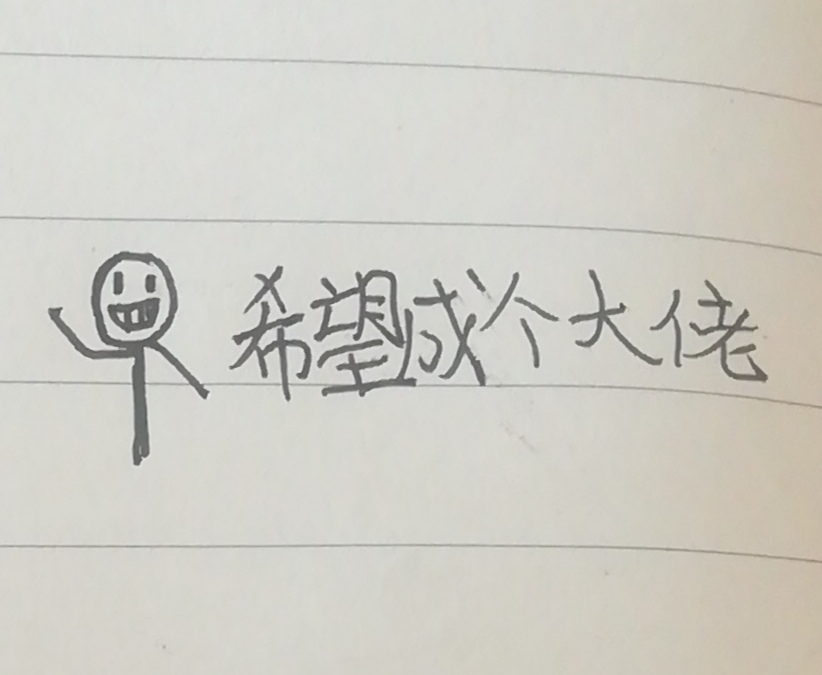 希望成个大佬